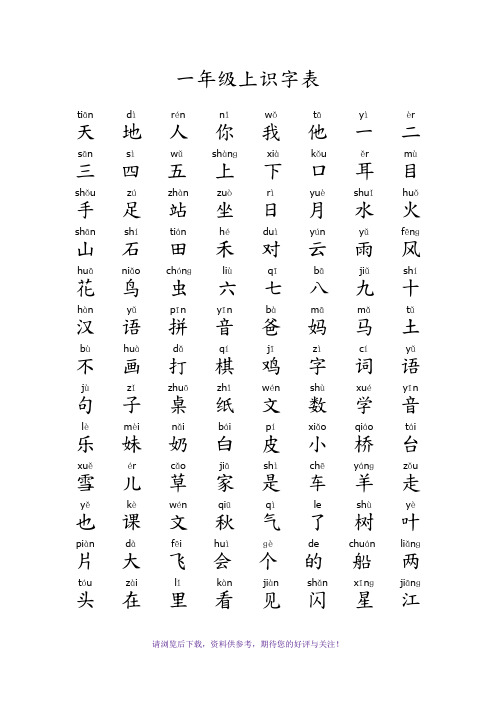 一年级上识字表
tiān dì rén nǐ wǒ tā yì èr
天 地 人 你 我 他 一 二
sān sì wǔ shàng xià kǒu ěr mù
三 四 五 上 下 口 耳 目
shǒu zú zhàn zuò rì yuè shuǐ huǒ
手 足 站 坐 日 月 水 火
shān shí tián hé duì yún yǔ fēng
山 石 田 禾 对 云 雨 风
huā niǎo chóng liù qī bā jiǔ shí
花 鸟 虫 六 七 八 九 十
hàn yǔ pīn yīn bà mā mǎ tǔ
汉 语 拼 音 爸 妈 马 土
bù huà dǎ qí jī zì cí yǔ
不 画 打 棋 鸡 字 词 语
jù zǐ zhuō zhǐ wén shù xué yīn
句 子 桌 纸 文 数 学 音
lè mèi nǎi bái pí xiǎo qiáo tái
乐 妹 奶 白 皮 小 桥 台
xuě ér cǎo jiā shì chē yáng zǒu
雪 儿 草 家 是 车 羊 走
yě kè wén qiū qì le shù yè
也 课 文 秋 气 了 树 叶
piàn dà fēi huì gè de chuán liǎng
片 大 飞 会 个 的 船 两
tóu zài lǐ kàn jiàn shǎn xīng jiāng
头 在 里 看 见 闪 星 江
请浏览后下载，资料供参考，期待您的好评与关注！